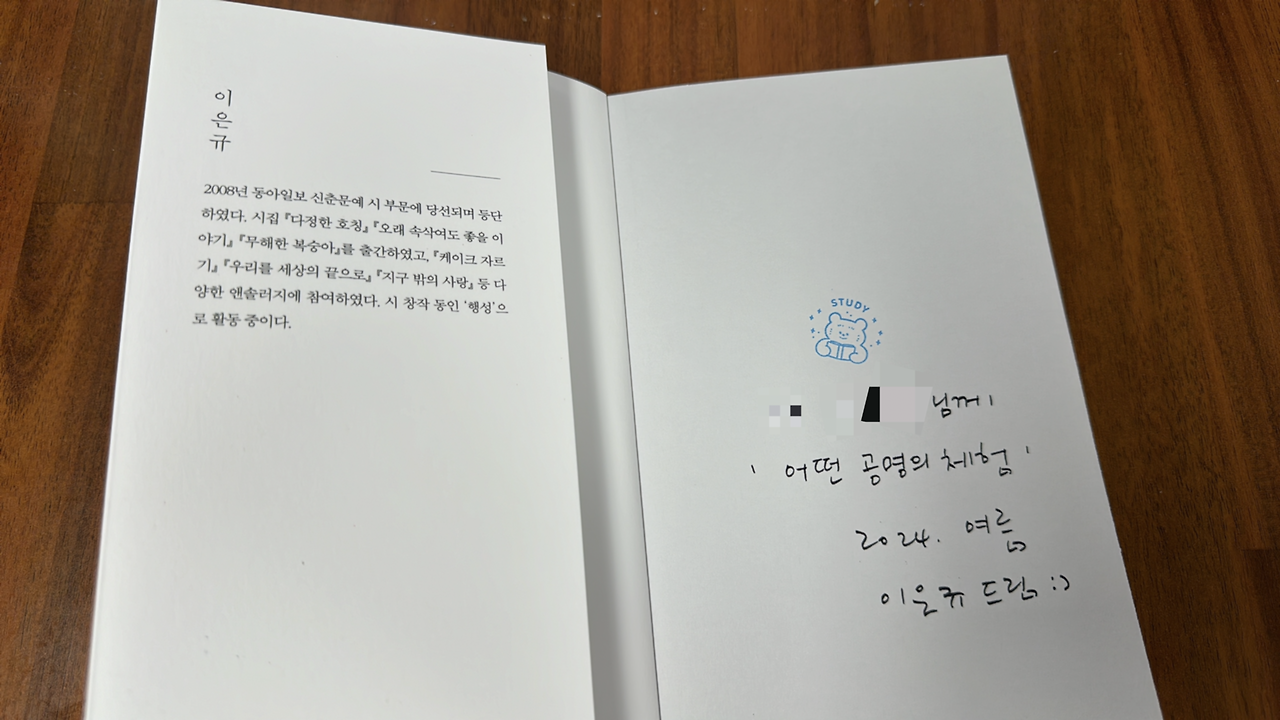 이
은
규
2008년 동아일보 신춘문예 시 부문에 당선되며 등단
하였다. 시집 『다정한 호칭』 『오래 속삭여도 좋을 이
야기』 『무해한 복숭아』를 출간하였고, 『케이크 자르
기』 『우리를 세상의 끝으로』 『지구 밖의 사랑』 등 다
양한 앤솔러지에 참여하였다. 시 창작 동인 ‘행성’으
로 활동 중이다.
STUDY
님께
' 어떤 공명의 체험 '
2024. 여름
이은규 드림 :)